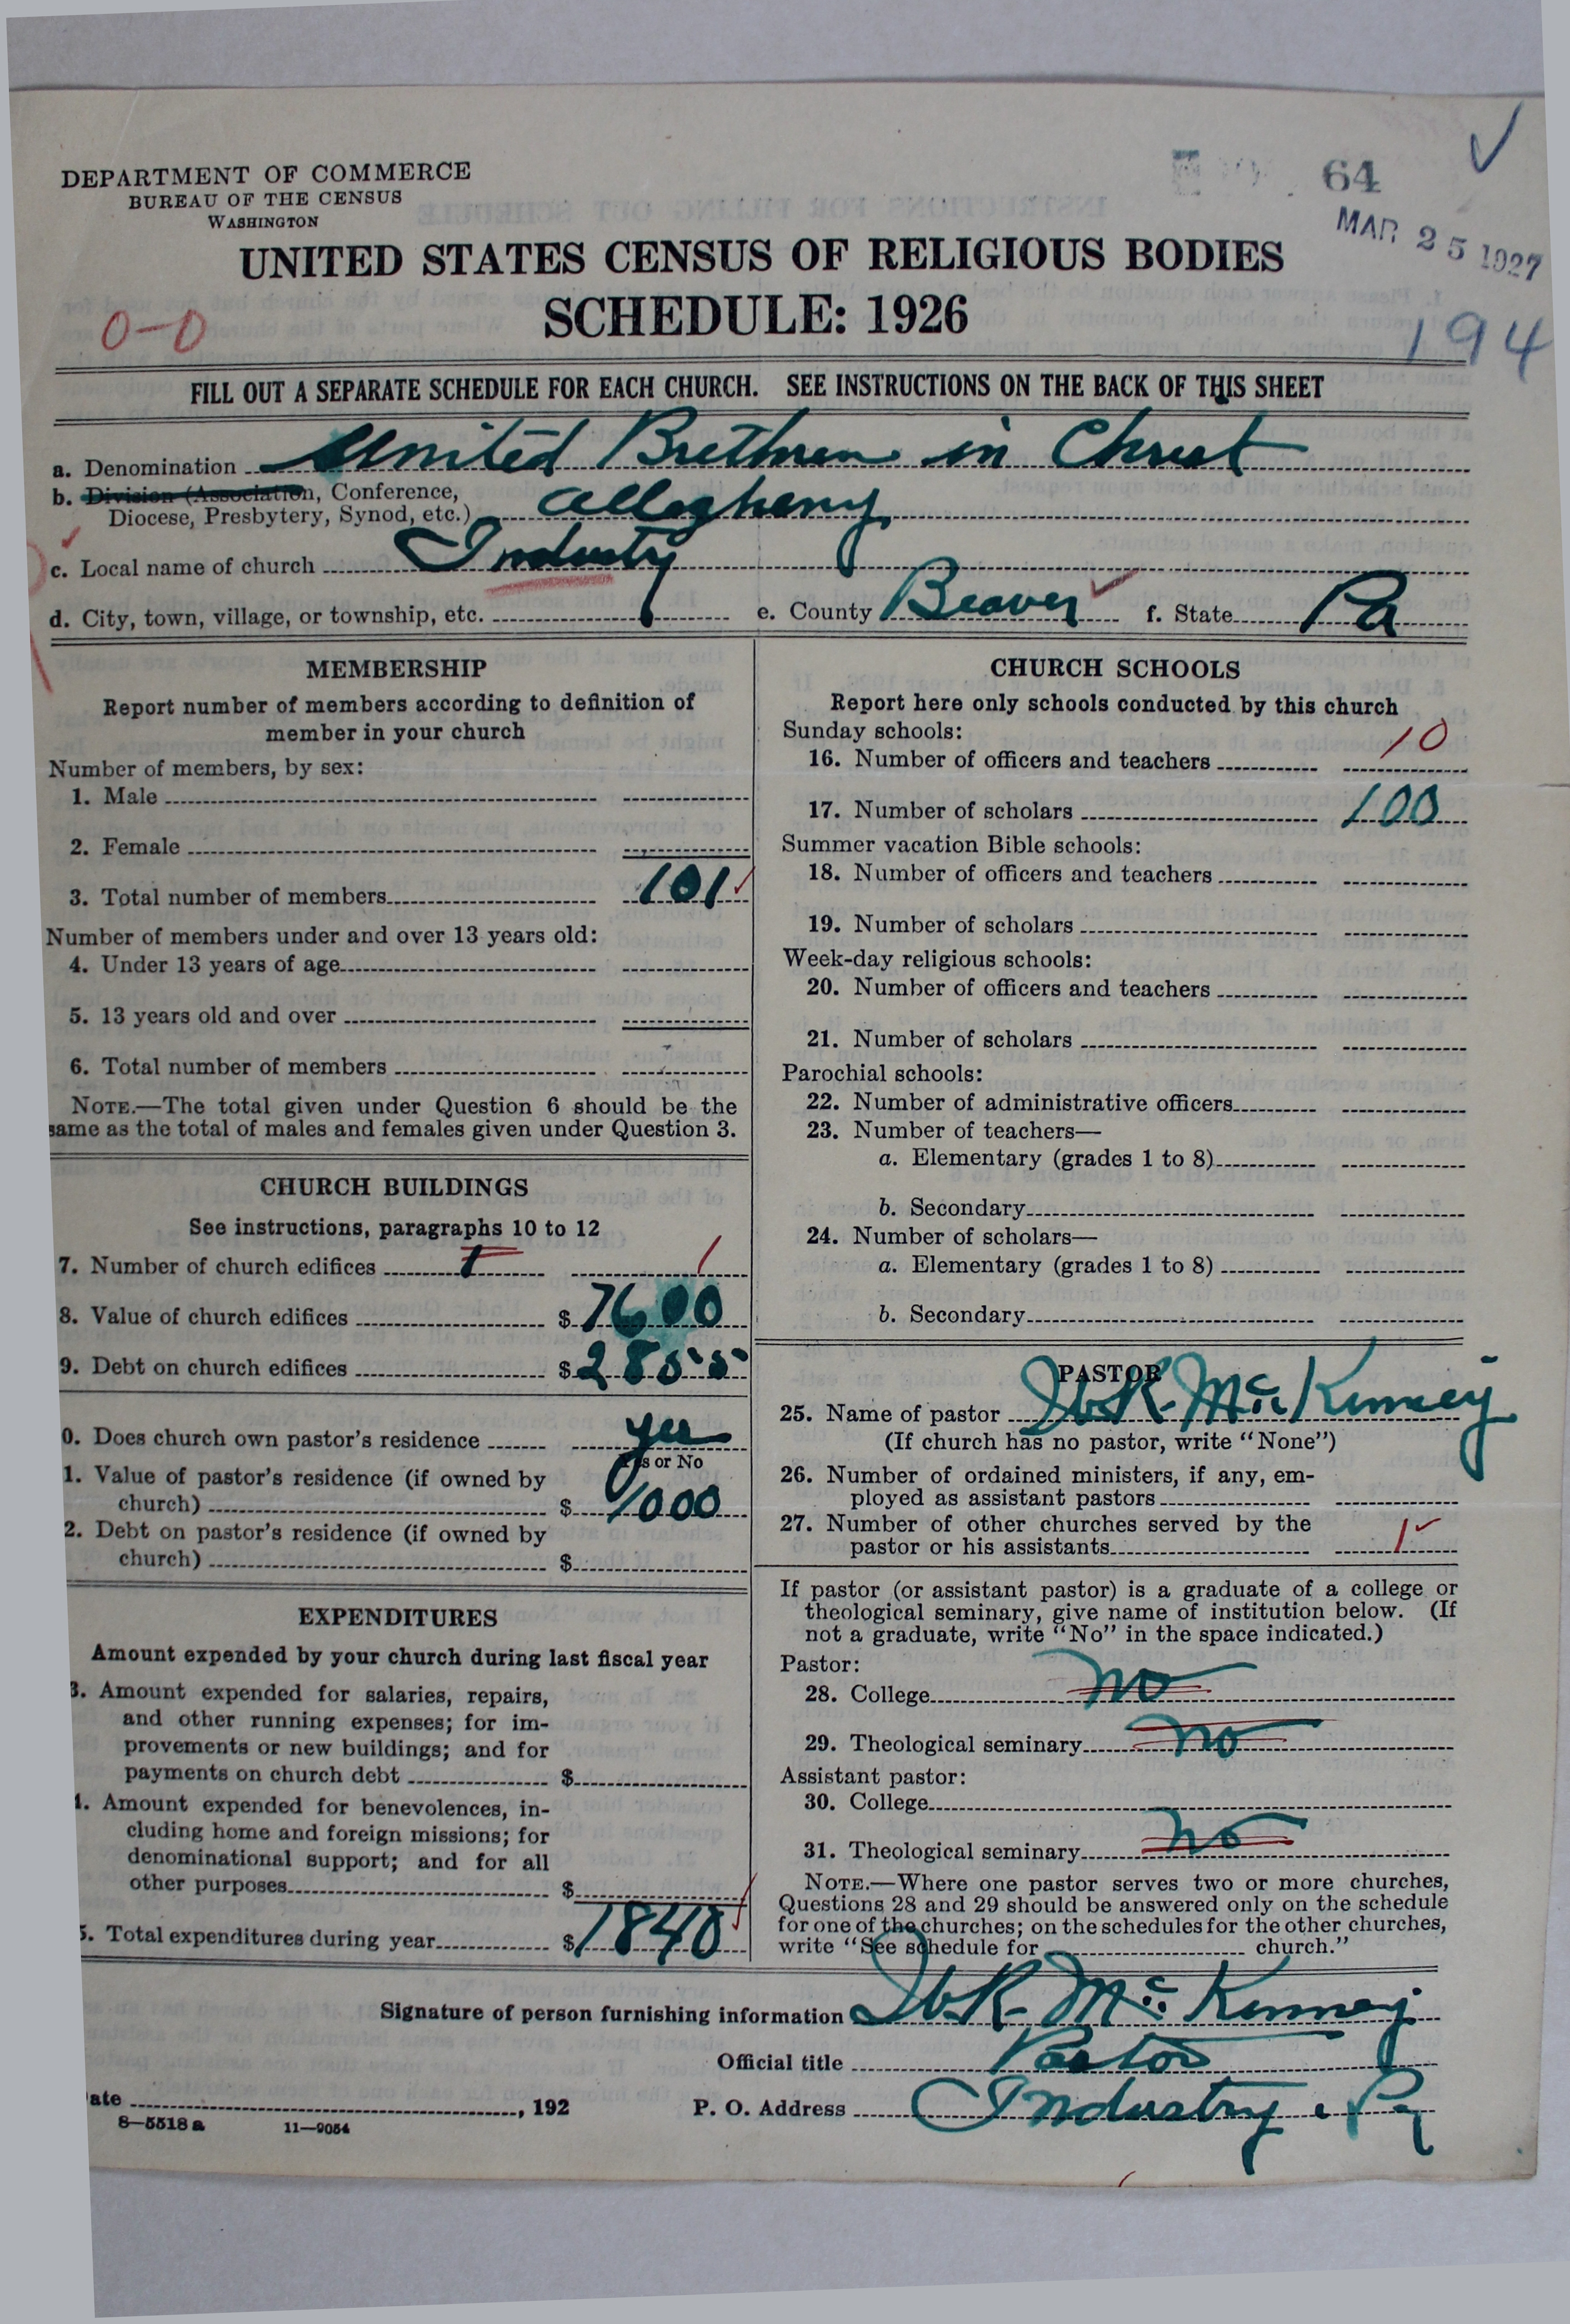 64
MAR 25 1927
DEPARTMENT OF COMMERCE
BUREAU OF THE CENSUS
WASHINGTON
UNITED STATES CENSUS OF RELIGIOUS BODIES
SCHEDULE: 1926
0-0
194
FILL OUT A SEPARATE SCHEDULE FOR EACH CHURCH. SEE INSTRUCTIONS ON THE BACK OF THIS SHEET
a. Denomination United Brethren in Christ
b. Division (Association, Conference,
Diocese, Presbytery, Synod, etc.) Allegheny
c. Local name of church Industry
d. City, town, village, or township, etc. e. County Beaver f. State Pa
MEMBERSHIP
Report number of members according to definition of
member in your church
Number of members, by sex:
1. Male
2. Female
3. Total number of members 101
Number of members under and over 13 years old:
4. Under 13 years of age
5. 13 years old and over
6. Total number of members
NOTE.—The total given under Question 6 should be the
same as the total of males and females given under Question 3.
CHURCH BUILDINGS
See instructions, paragraphs 10 to 12
7. Number of church edifices 1 1
8. Value of church edifices $ 7600
9. Debt on church edifices $ 2855
0. Does church own pastor's residence yes
Yes or No
1. Value of pastor's residence (if owned by
church) $ 1000
2. Debt on pastor's residence (if owned by
church) $
EXPENDITURES
Amount expended by your church during last fiscal year
3. Amount expended for salaries, repairs,
and other running expenses; for im-
provements or new buildings; and for
payments on church debt $
4. Amount expended for benevolences, in-
cluding home and foreign missions; for
denominational support; and for all
other purposes $
5. Total expenditures during year $ 1840
CHURCH SCHOOLS
Report here only schools conducted by this church
Sunday schools:
16. Number of officers and teachers 10
17. Number of scholars 100
Summer vacation Bible schools:
18. Number of officers and teachers
19. Number of scholars
Week-day religious schools:
20. Number of officers and teachers
21. Number of scholars
Parochial schools:
22. Number of administrative officers
23. Number of teachers—
a. Elementary (grades 1 to 8)
b. Secondary
24. Number of scholars—
a. Elementary (grades 1 to 8)
b. Secondary
PASTOR
25. Name of pastor McKinney
(If church has no pastor, write "None")
26. Number of ordained ministers, if any, em-
ployed as assistant pastors
27. Number of other churches served by the
pastor or his assistants 1
If pastor (or assistant pastor) is a graduate of a college or
theological seminary, give name of institution below. (If
not a graduate, write "No" in the space indicated.)
Pastor:
28. College no
29. Theological seminary no
Assistant pastor:
30. College
31. Theological seminary no
NOTE.—Where one pastor serves two or more churches,
Questions 28 and 29 should be answered only on the schedule
for one of the churches; on the schedules for the other churches,
write "See schedule for church."
Signature of person furnishing information McKinney
Official title Pastor
ate , 192 P. O. Address Industry, Pa
8—5518 a 11—9054